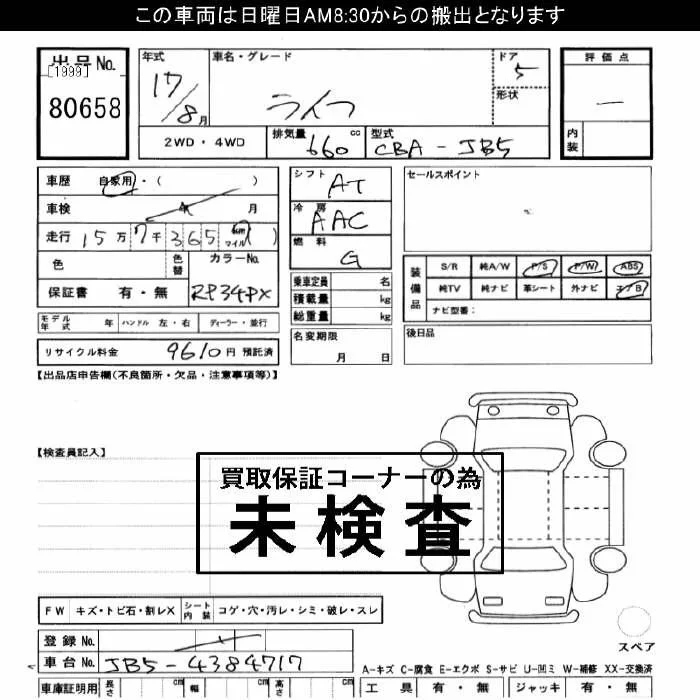 この車両は日曜日AM8:30からの搬出となります
出品No.
[1999]
80658
年式
17/8月
車名・グレード
ライフ
ドア
5
形状
評価点
—
内装
2WD・4WD
排気量
660 cc
型式
CBA-JB5
車歴 自家用・( )
車検 年 月
走行 15万7千365 km マイル ( )
色
色替
カラーNo.
保証書 有・無
RP34PX
シフト
AT
冷房
AAC
燃料
G
乗車定員 名
積載量 kg
総重量 kg
セールスポイント
装備品
S/R 純A/W P/S P/W ABS
純TV 純ナビ 革シート 外ナビ エアB
ナビ型番:
モデル年式 年 ハンドル 左・右 ディーラー・並行
リサイクル料金 9610円 預託済
名変期限
月 日
後日品
【出品店申告欄(不良箇所・欠品・注意事項等)】
【検査員記入】
買取保証コーナーの為
未検査
FW キズ・トビ石・割レX
シート内装 コゲ・穴・汚レ・シミ・破レ・スレ
スペア
登録No.
車台No. JB5-4384717
A-キズ C-腐食 E-エクボ S-サビ U-凹ミ W-補修 XX-交換済
車庫証明用 長さ cm 幅 cm 高さ cm
工具 有・無 ジャッキ 有・無